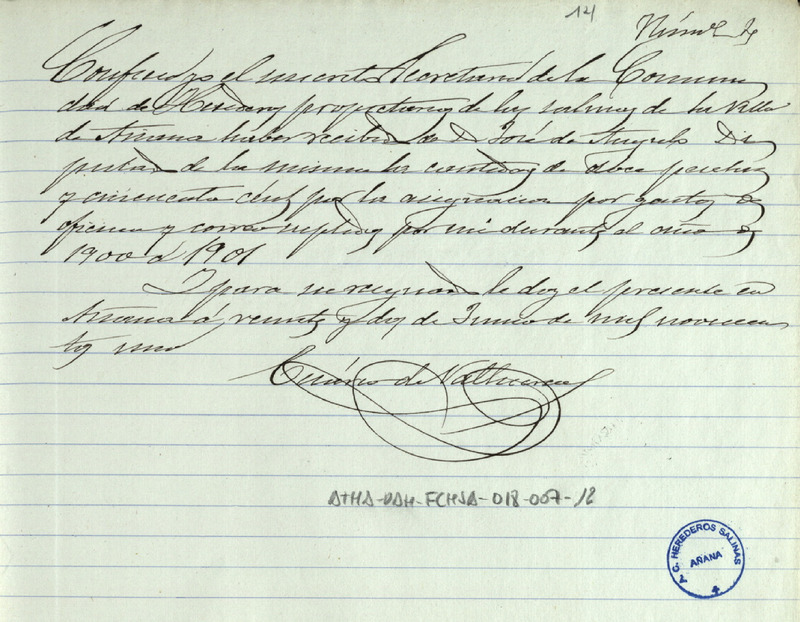 14
Númº
Confieso yo el infrascrito Secretario de la Comuni
dad de Herederos propietarios de las salinas de la Villa
de Añana haber recibido de D. José de Angulo Di
putado de la misma la cantidad de doce pesetas
y cincuenta cénts por la asignacion por gastos de
oficina y correo suplidos por mi durante el año de
1900 á 1901
Y para su resguardo le doy el presente en
Añana á veinte y dos de Junio de mil novecien
tos uno
de
ATHA-DAH-FCHSA-018-007-12
C. HEREDEROS SALINAS
AÑANA